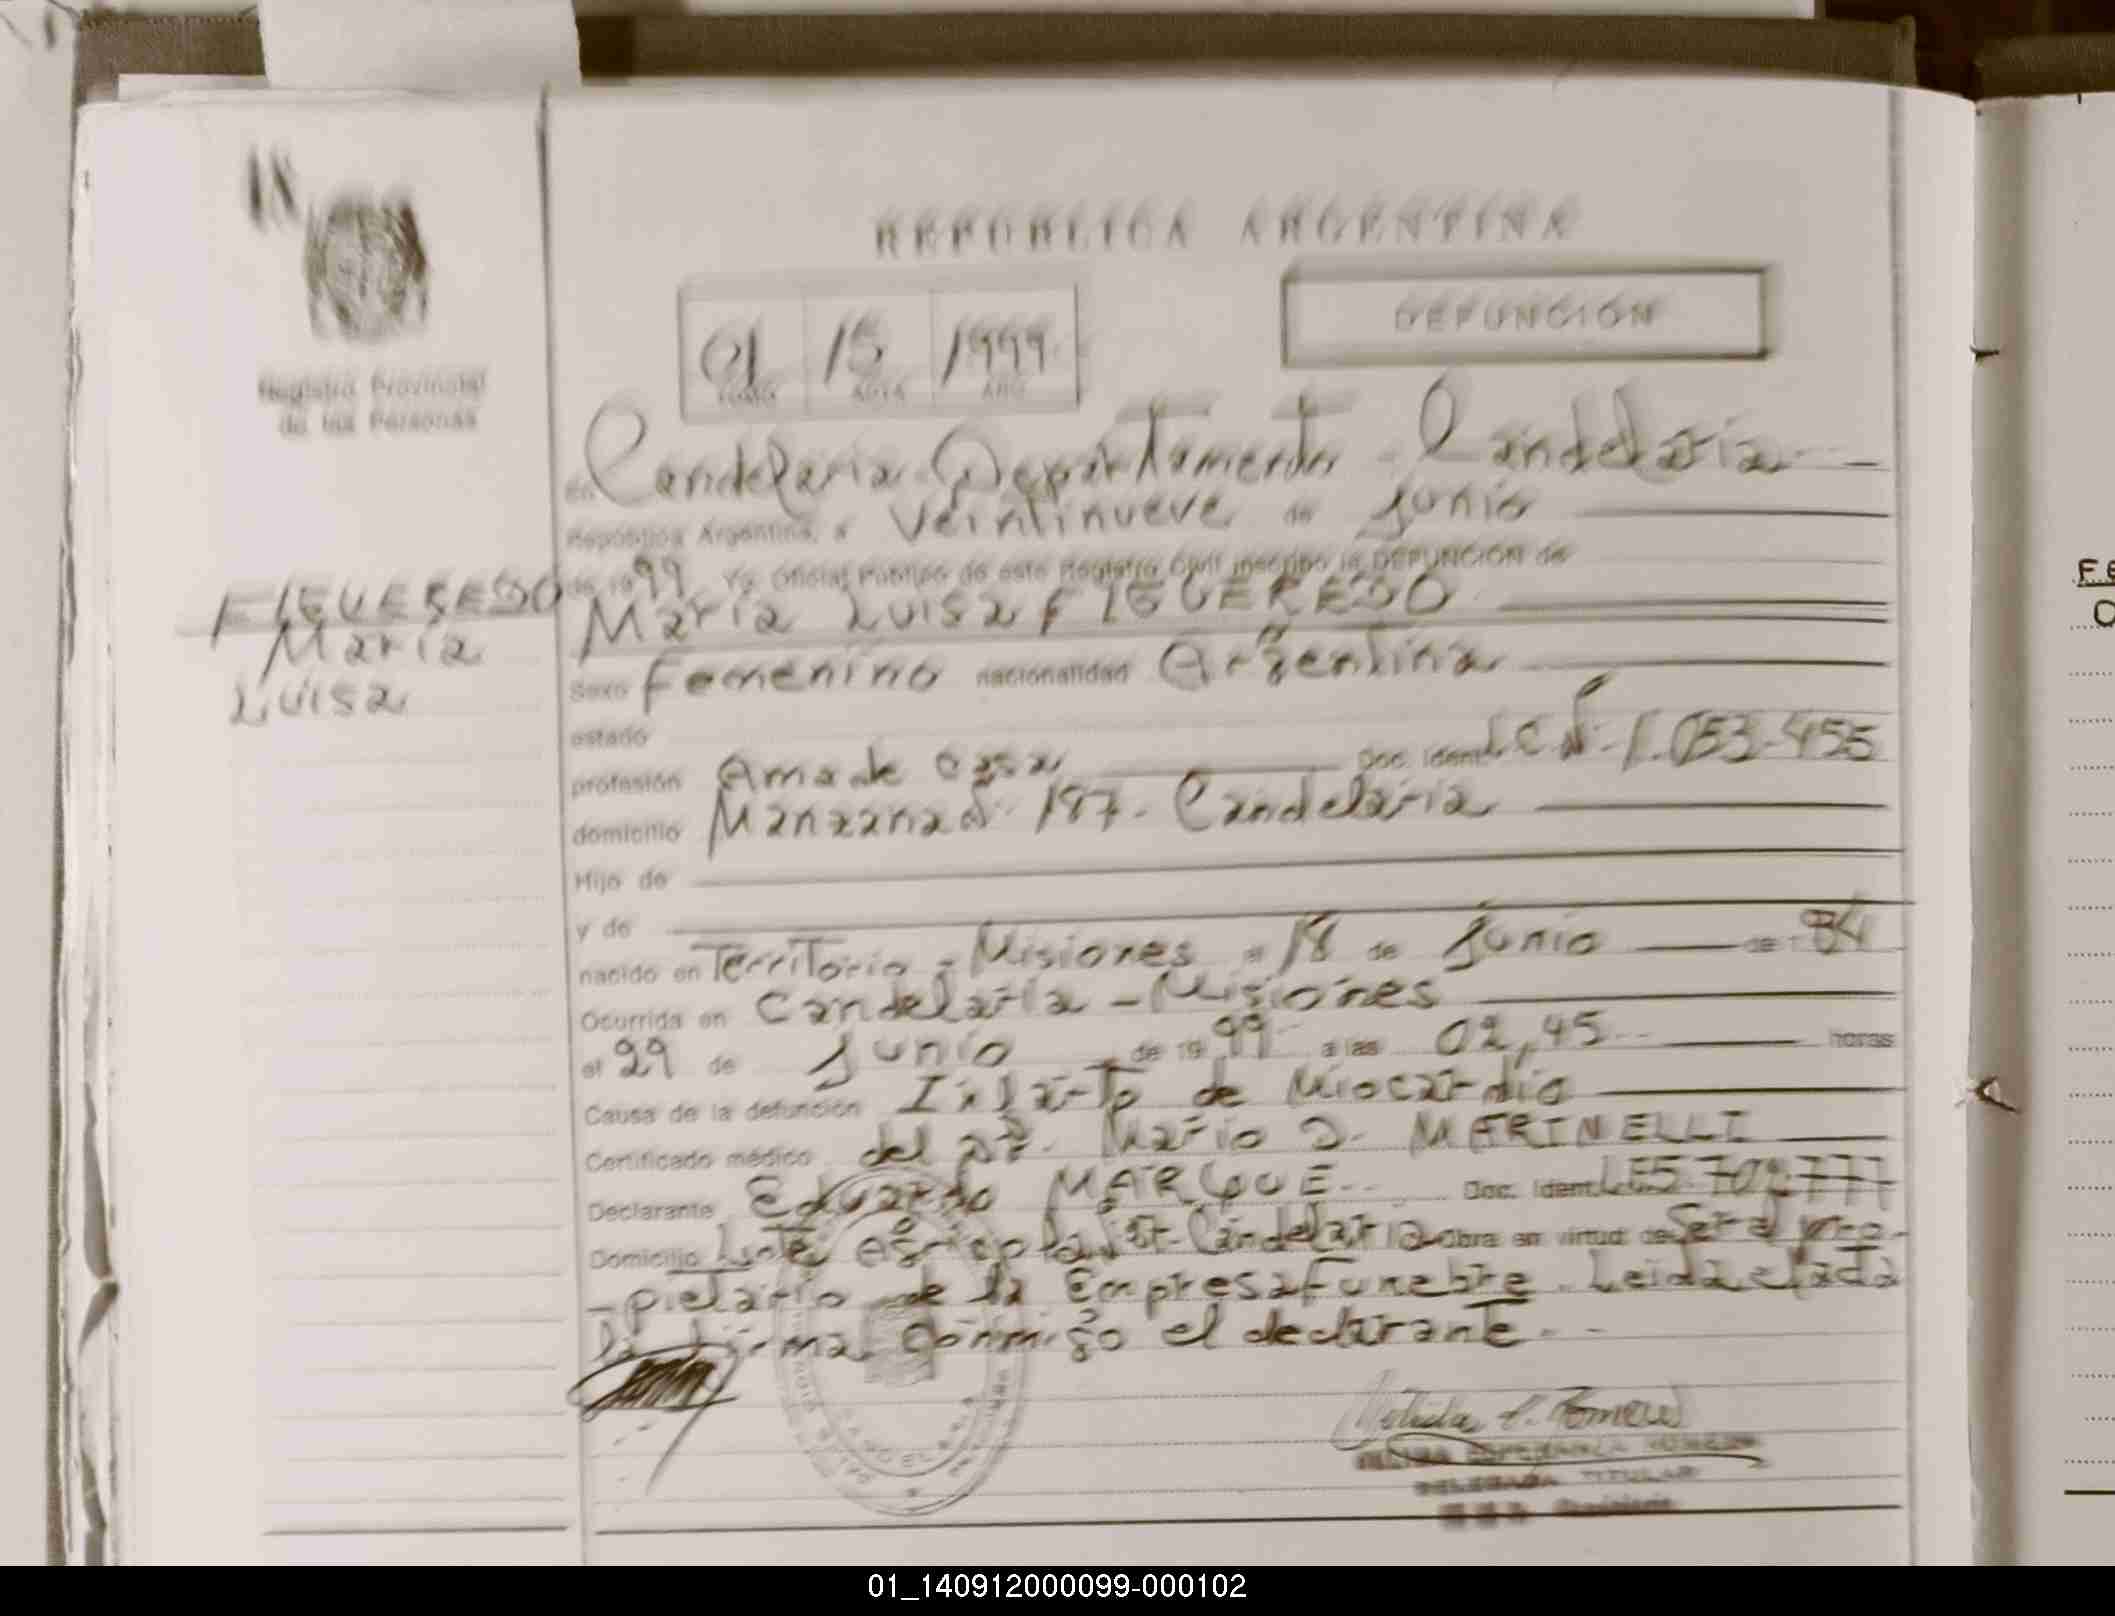 REPUBLICA ARGENTINA
DEFUNCIÓN
01 15 1999
TOMO ACTA AÑO
Registro Provincial
de las Personas
FIGUEREDO
María
Luisa
en Candelaria Departamento - Candelaria
República Argentina, a Veintinueve de Junio
de 1999 Yo Oficial Público de este Registro Civil inscribo la DEFUNCIÓN de
María Luisa FIGUEREDO
Sexo Femenino nacionalidad Argentina
estado
profesión Ama de casa Doc. Ident. L.C. Nº 1.053-455
domicilio Manzana Nº 187- Candelaria
Hijo de
y de
nacido en Territorio - Misiones el 18 de Junio de 1
Ocurrida en Candelaria - Misiones
el 29 de Junio de 1999 a las 02,45 horas
Causa de la defunción Infarto de Miocardio
Certificado médico del Dr. Mario D. MARINELLI
Declarante Eduardo MARQUE Doc. Ident. LE5.702.777
Domicilio Lote Agricola Candelaria Obra en virtud de Ser el pro-
-pietario de la Empresa Funebre. Leida el acta
la firma conmigo el declarante
DELEGADA TITULAR
Candelaria
01_140912000099-000102